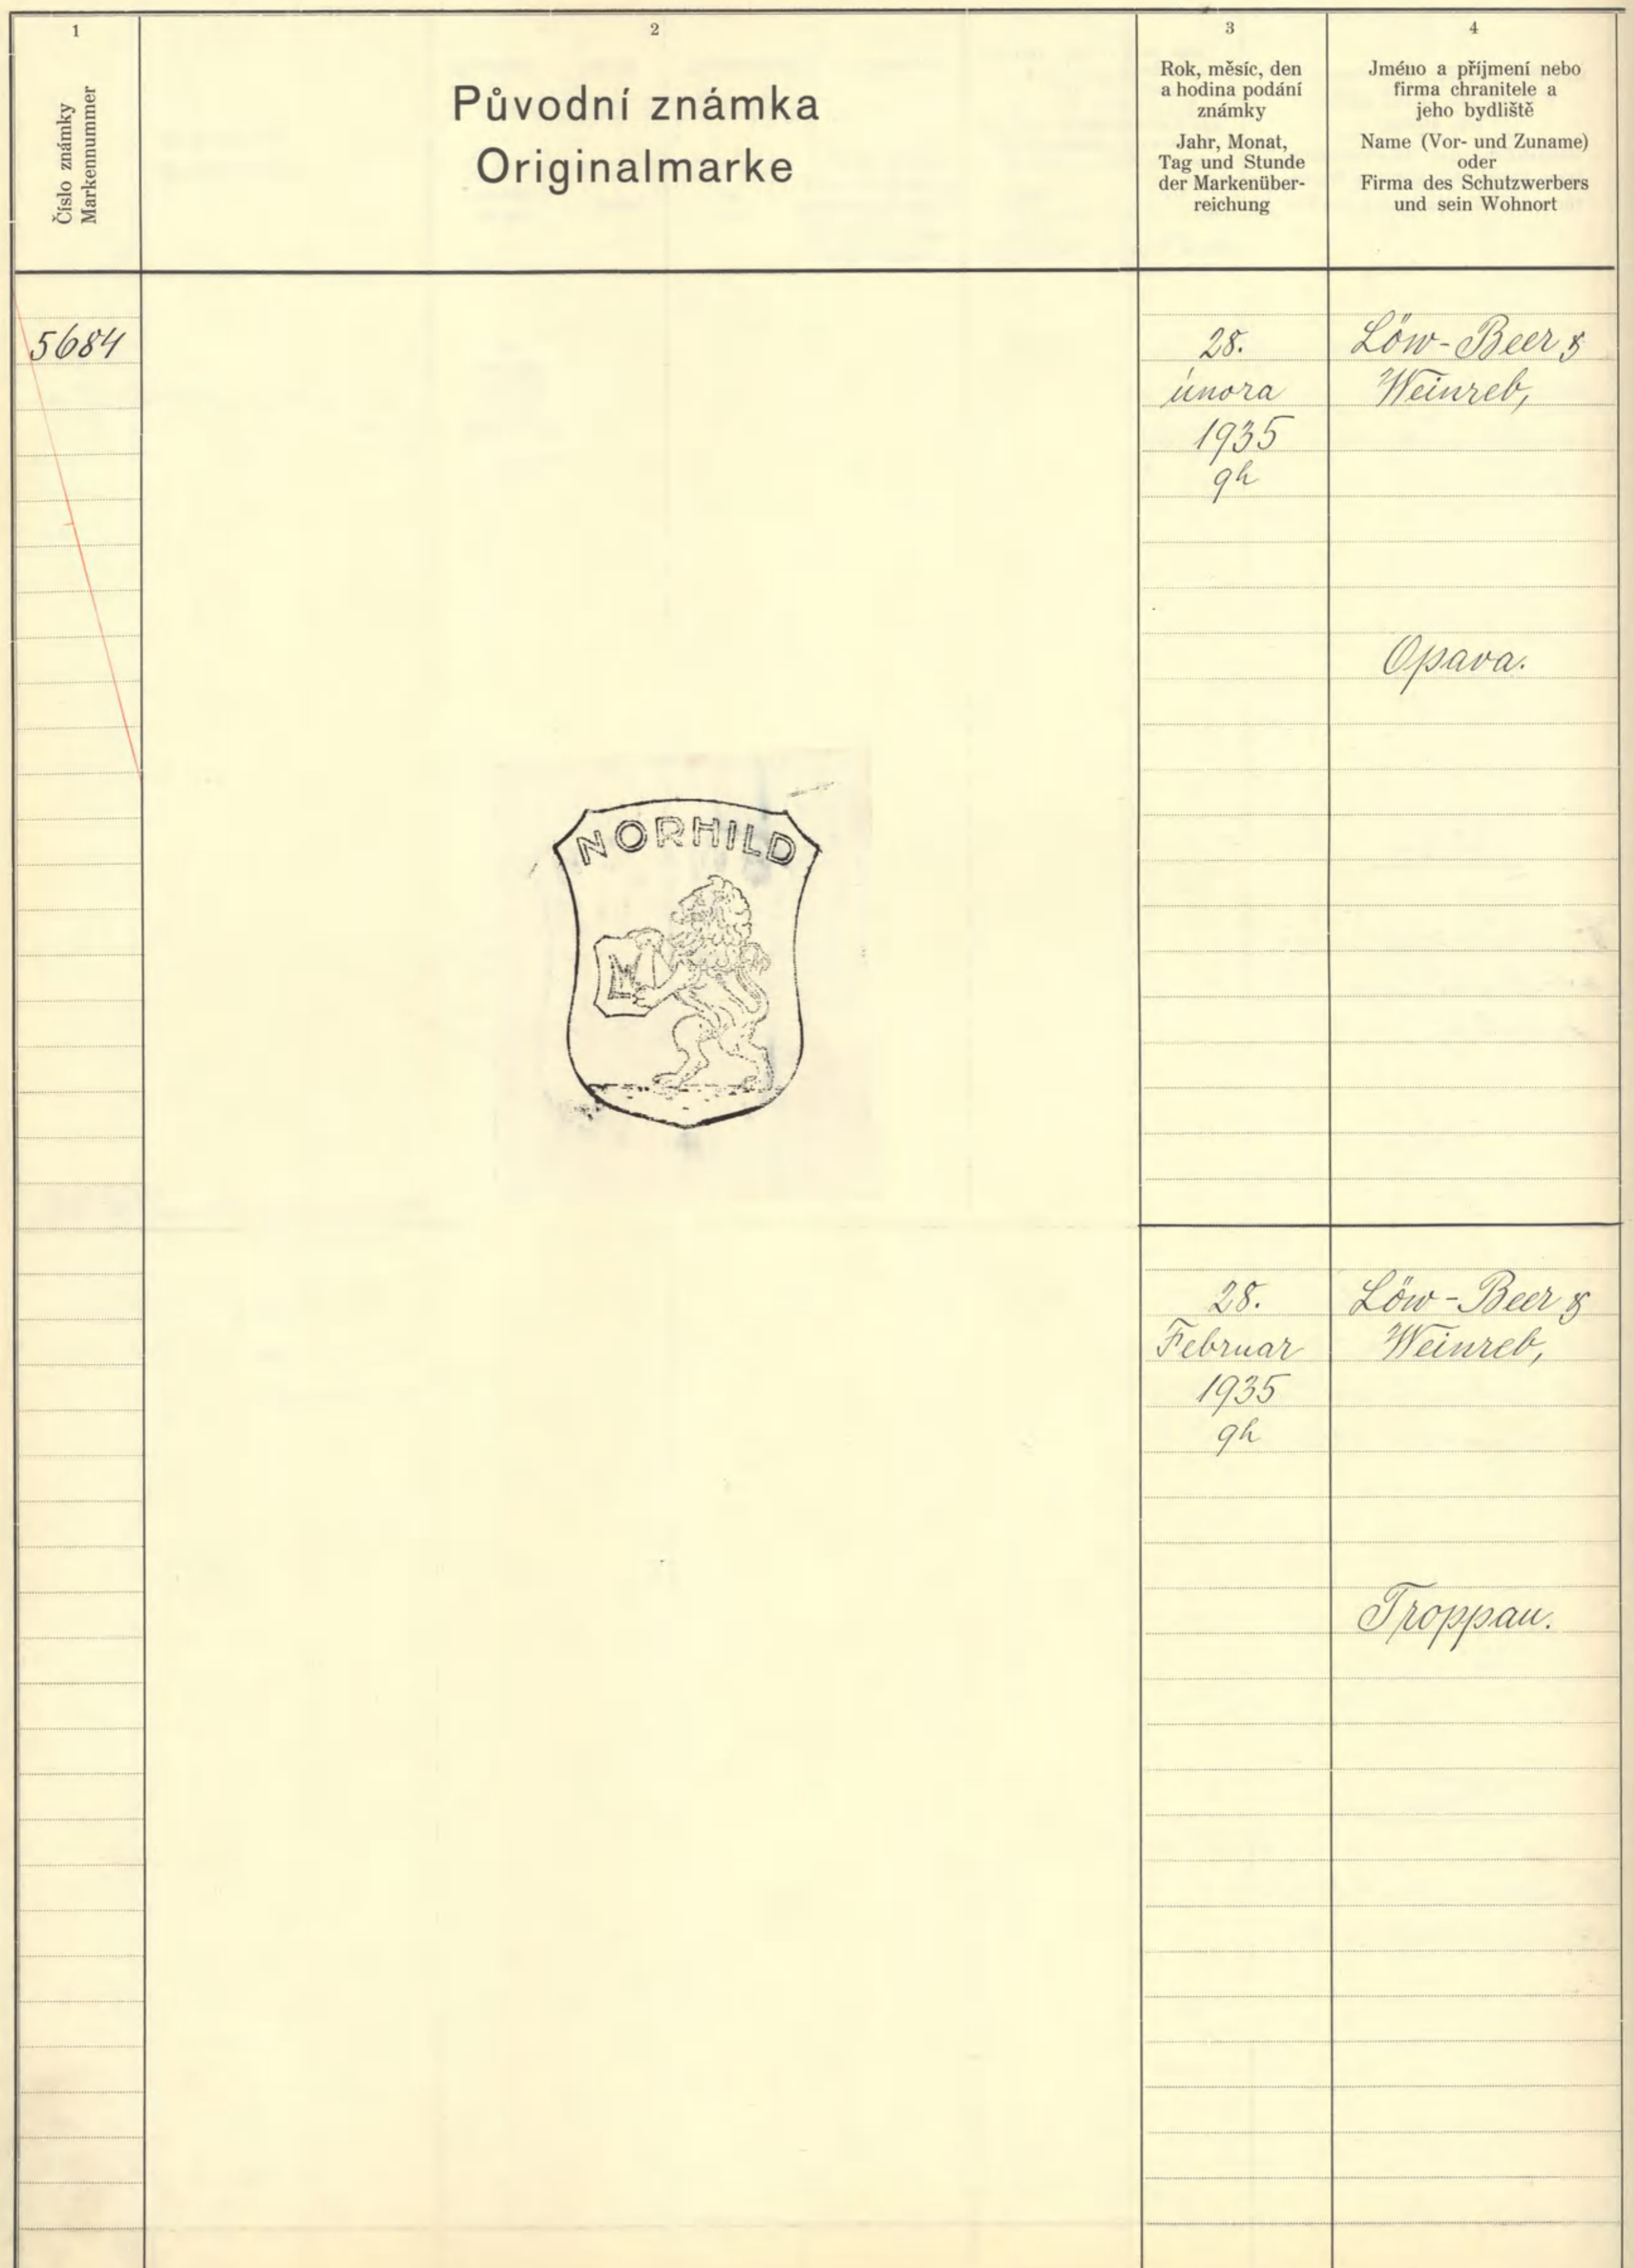 1
Číslo známky
Markennummer
2
Původní známka
Originalmarke
3
Rok, měsíc, den
a hodina podání
známky
Jahr, Monat,
Tag und Stunde
der Markenüber-
reichung
4
Jméno a příjmení nebo
firma chranitele a
jeho bydliště
Name (Vor- und Zuname)
oder
Firma des Schutzwerbers
und sein Wohnort
5684
28.
února
1935
9h
Löw-Beer &
Weinreb,
Opava.
NORHILD
28.
Februar
1935
9h
Löw-Beer &
Weinreb,
Troppau.